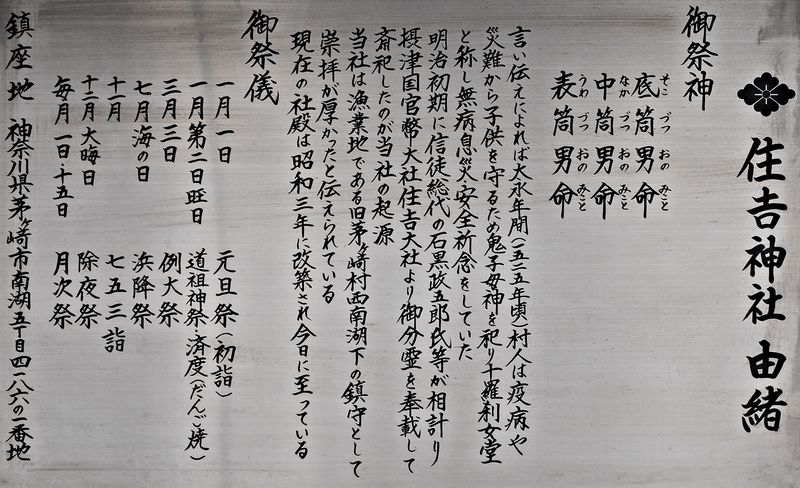 住吉神社由緒
御祭神
底筒男命
そこ づつ おの みこと
中筒男命
なか づつ おの みこと
表筒男命
うわ づつ おの みこと
言い伝えによれば大永年間(一五二五年頃)村人は疫病や
災難から子供を守るため鬼子母神を祀り十羅刹女堂
と称し無病息災安全祈念をしていた
明治初期に信徒総代の石黒政五郎氏等が相計り
摂津国官幣大社住吉大社より御分霊を奉載して
斎祀したのが当社の起源
当社は漁業地である旧茅ヶ崎村西南湖下の鎮守として
崇拝が厚かったと伝えられている
現在の社殿は昭和三年に改築され今日に至っている
御祭儀
一月一日 元旦祭(初詣)
一月第二日旺日 道祖神祭・済度(だんご焼)
三月三日 例大祭
七月海の日 浜降祭
十一月 七五三詣
十二月大晦日 除夜祭
毎月一日十五日 月次祭
鎮座地 神奈川県茅ヶ崎市南湖五丁目四一八六の一番地